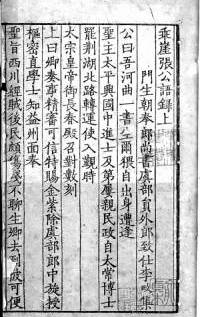 乖崖張公語錄上
門生朝奉郎尚書虞部員外郎致仕李畋集
公曰吾河曲一書生爾猥自出身遭逢
聖主太平興國中進士及第屢親民政自太常博士
罷荆湖北路轉運使入覲時
太宗皇帝御長春殿召對數刻
上曰卿奏事精審可信特賜金紫除虞部郎中旋授
樞密直學士知益州面奉
聖旨西川經賊後民頗傷殘不聊生卿去到彼可便